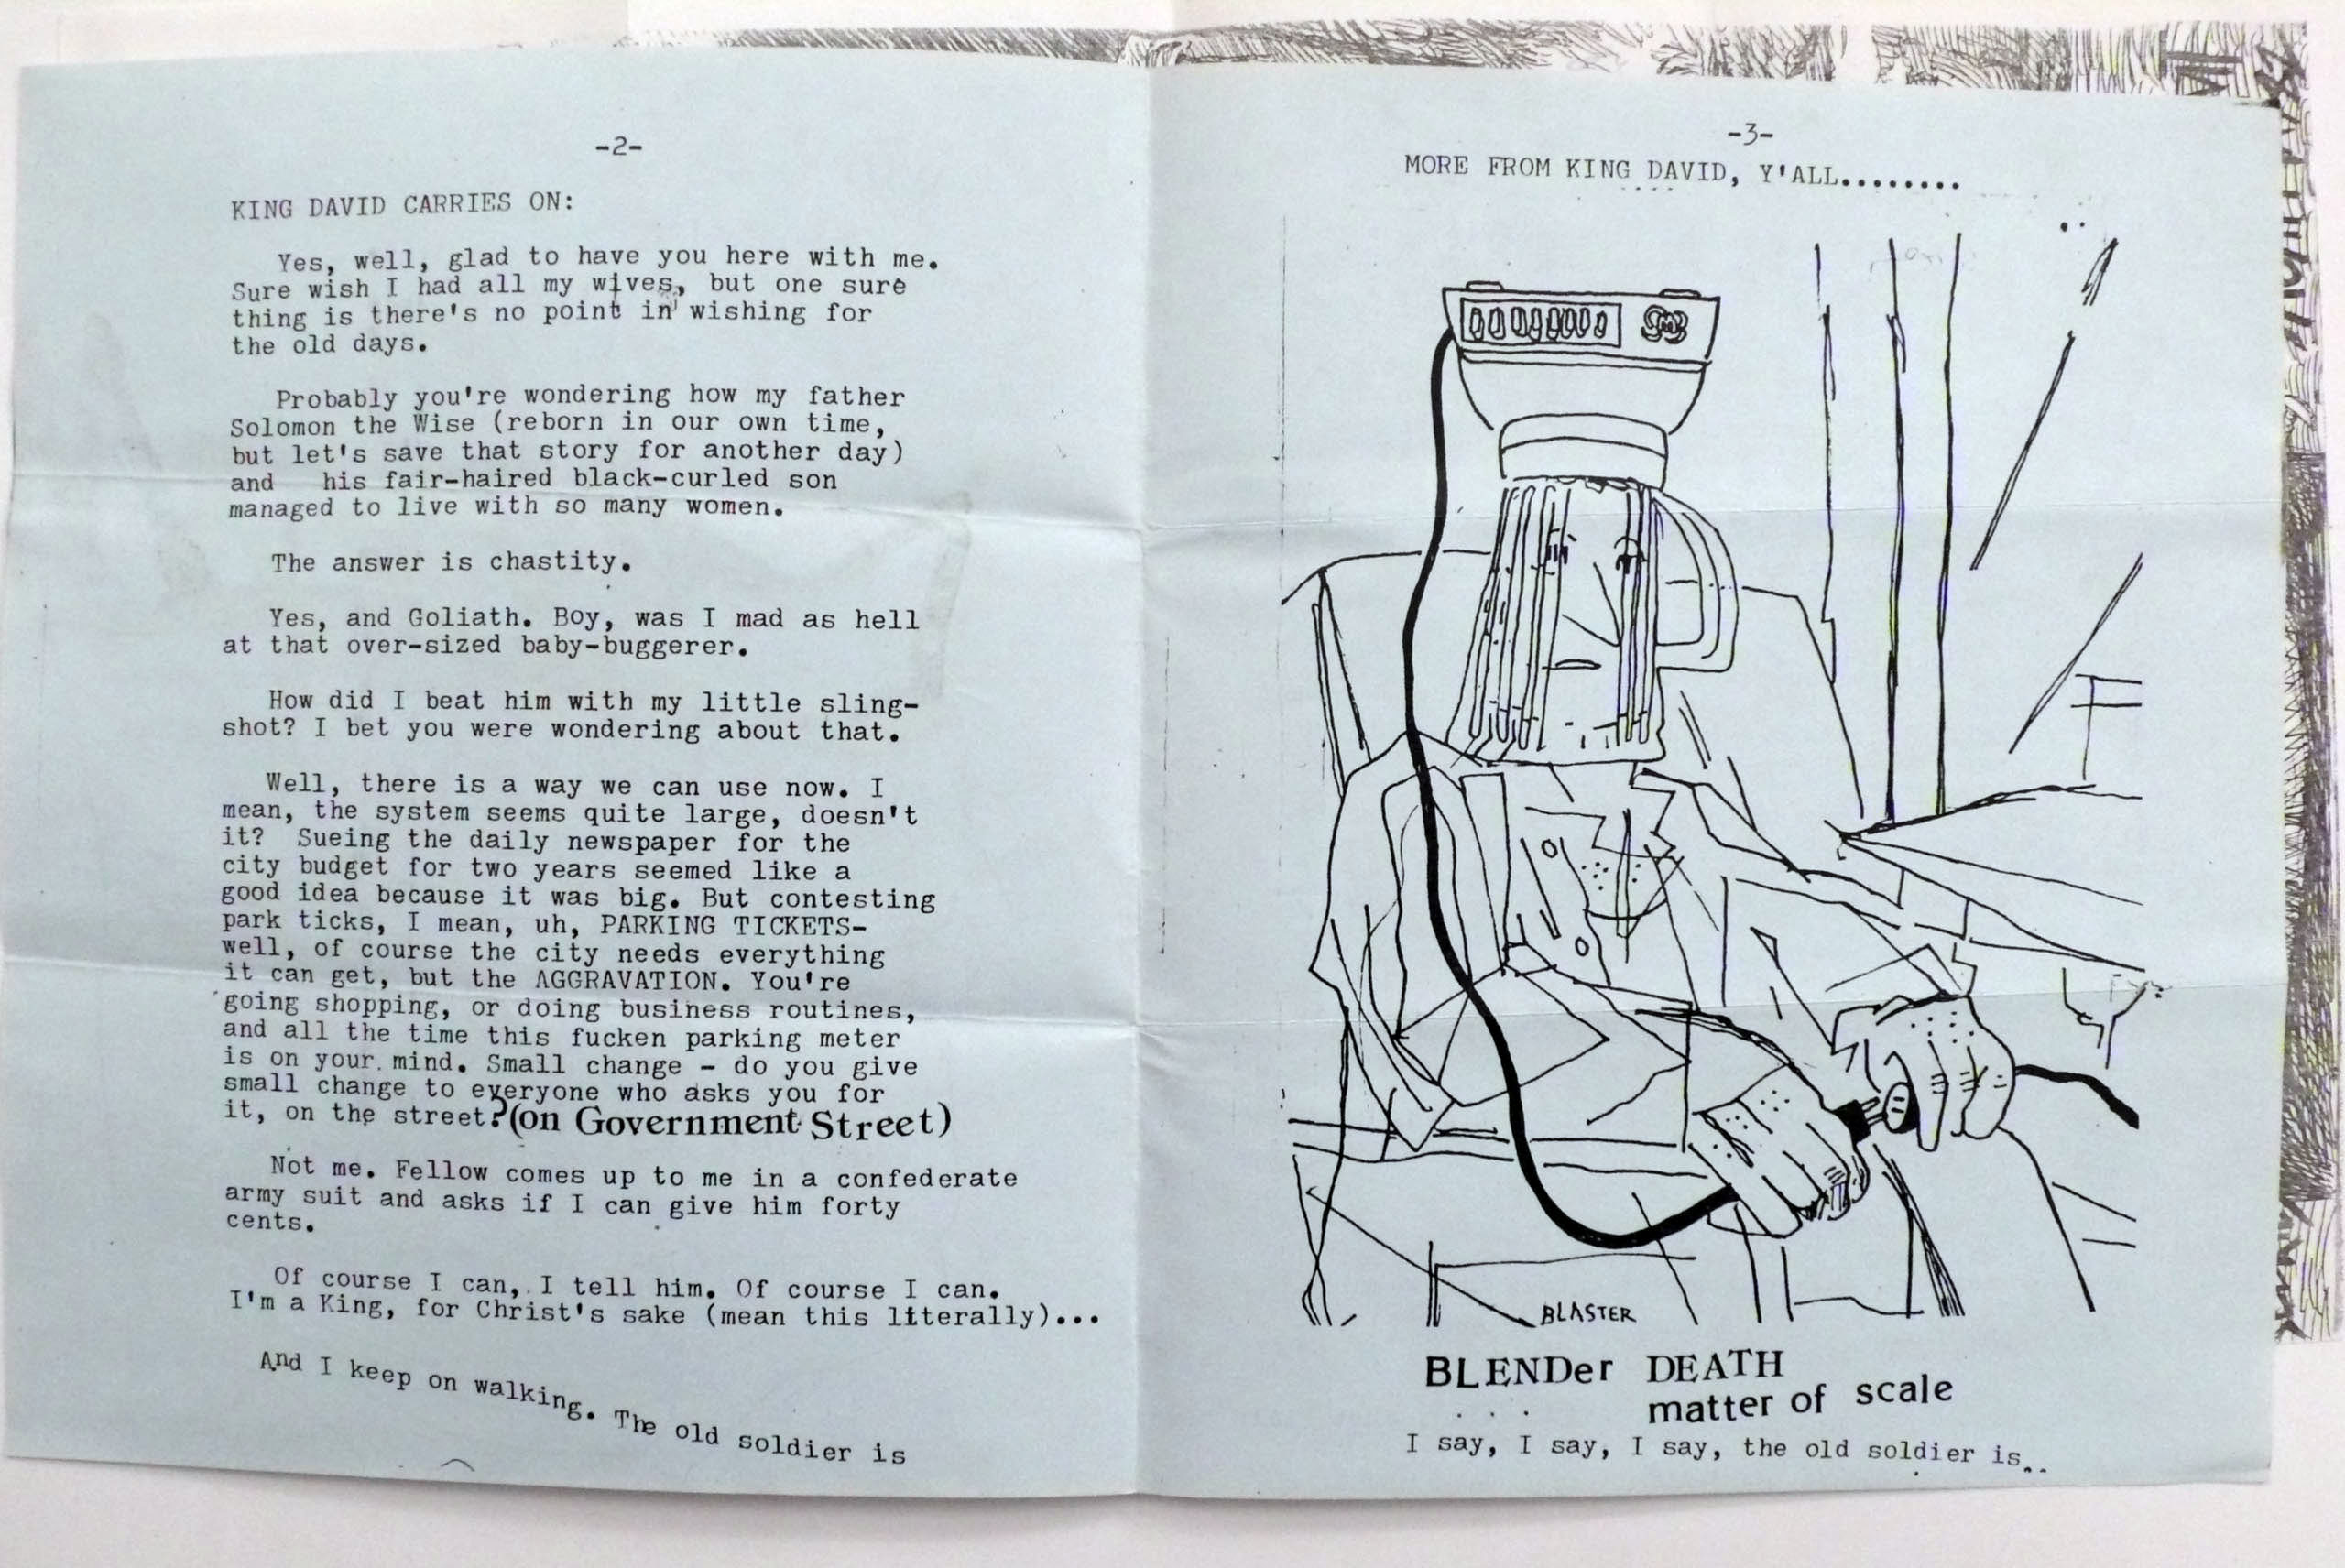 -2-
KING DAVID CARRIES ON:
Yes, well, glad to have you here with me.
Sure wish I had all my wives, but one sure
thing is there's no point in wishing for
the old days.
Probably you're wondering how my father
Solomon the Wise (reborn in our own time,
but let's save that story for another day)
and his fair-haired black-curled son
managed to live with so many women.
The answer is chastity.
Yes, and Goliath. Boy, was I mad as hell
at that over-sized baby-buggerer.
How did I beat him with my little sling-
shot? I bet you were wondering about that.
Well, there is a way we can use now. I
mean, the system seems quite large, doesn't
it? Sueing the daily newspaper for the
city budget for two years seemed like a
good idea because it was big. But contesting
park ticks, I mean, uh, PARKING TICKETS-
well, of course the city needs everything
it can get, but the AGGRAVATION. You're
going shopping, or doing business routines,
and all the time this fucken parking meter
is on your mind. Small change - do you give
small change to everyone who asks you for
it, on the street?(on Government Street)
Not me. Fellow comes up to me in a confederate
army suit and asks if I can give him forty
cents.
Of course I can, I tell him. Of course I can.
I'm a King, for Christ's sake (mean this literally)...
And I keep on walking. The old soldier is
-3-
MORE FROM KING DAVID, Y'ALL........
BLASTER
BLENDer DEATH
matter of scale
I say, I say, I say, the old soldier is..